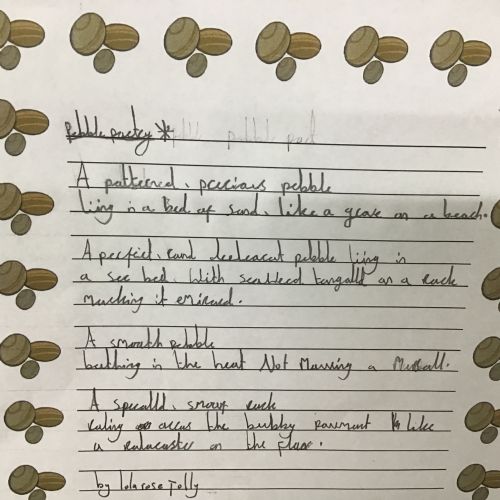 Pebble poetry
A patterned, precious pebble
liing in a Bed of sand, like a grave on a beach.
A perfect, rand deeleacat pebble liing in
a see bed. With seaweed tangalld on a Rock
macking it emiraud.
A smouth Pebble
bathing in the heat Not Moving a Musall.
A specalld, smout rock
raling acros the bubby pavment like
a rolacoaster on the
by lola rose Jolly